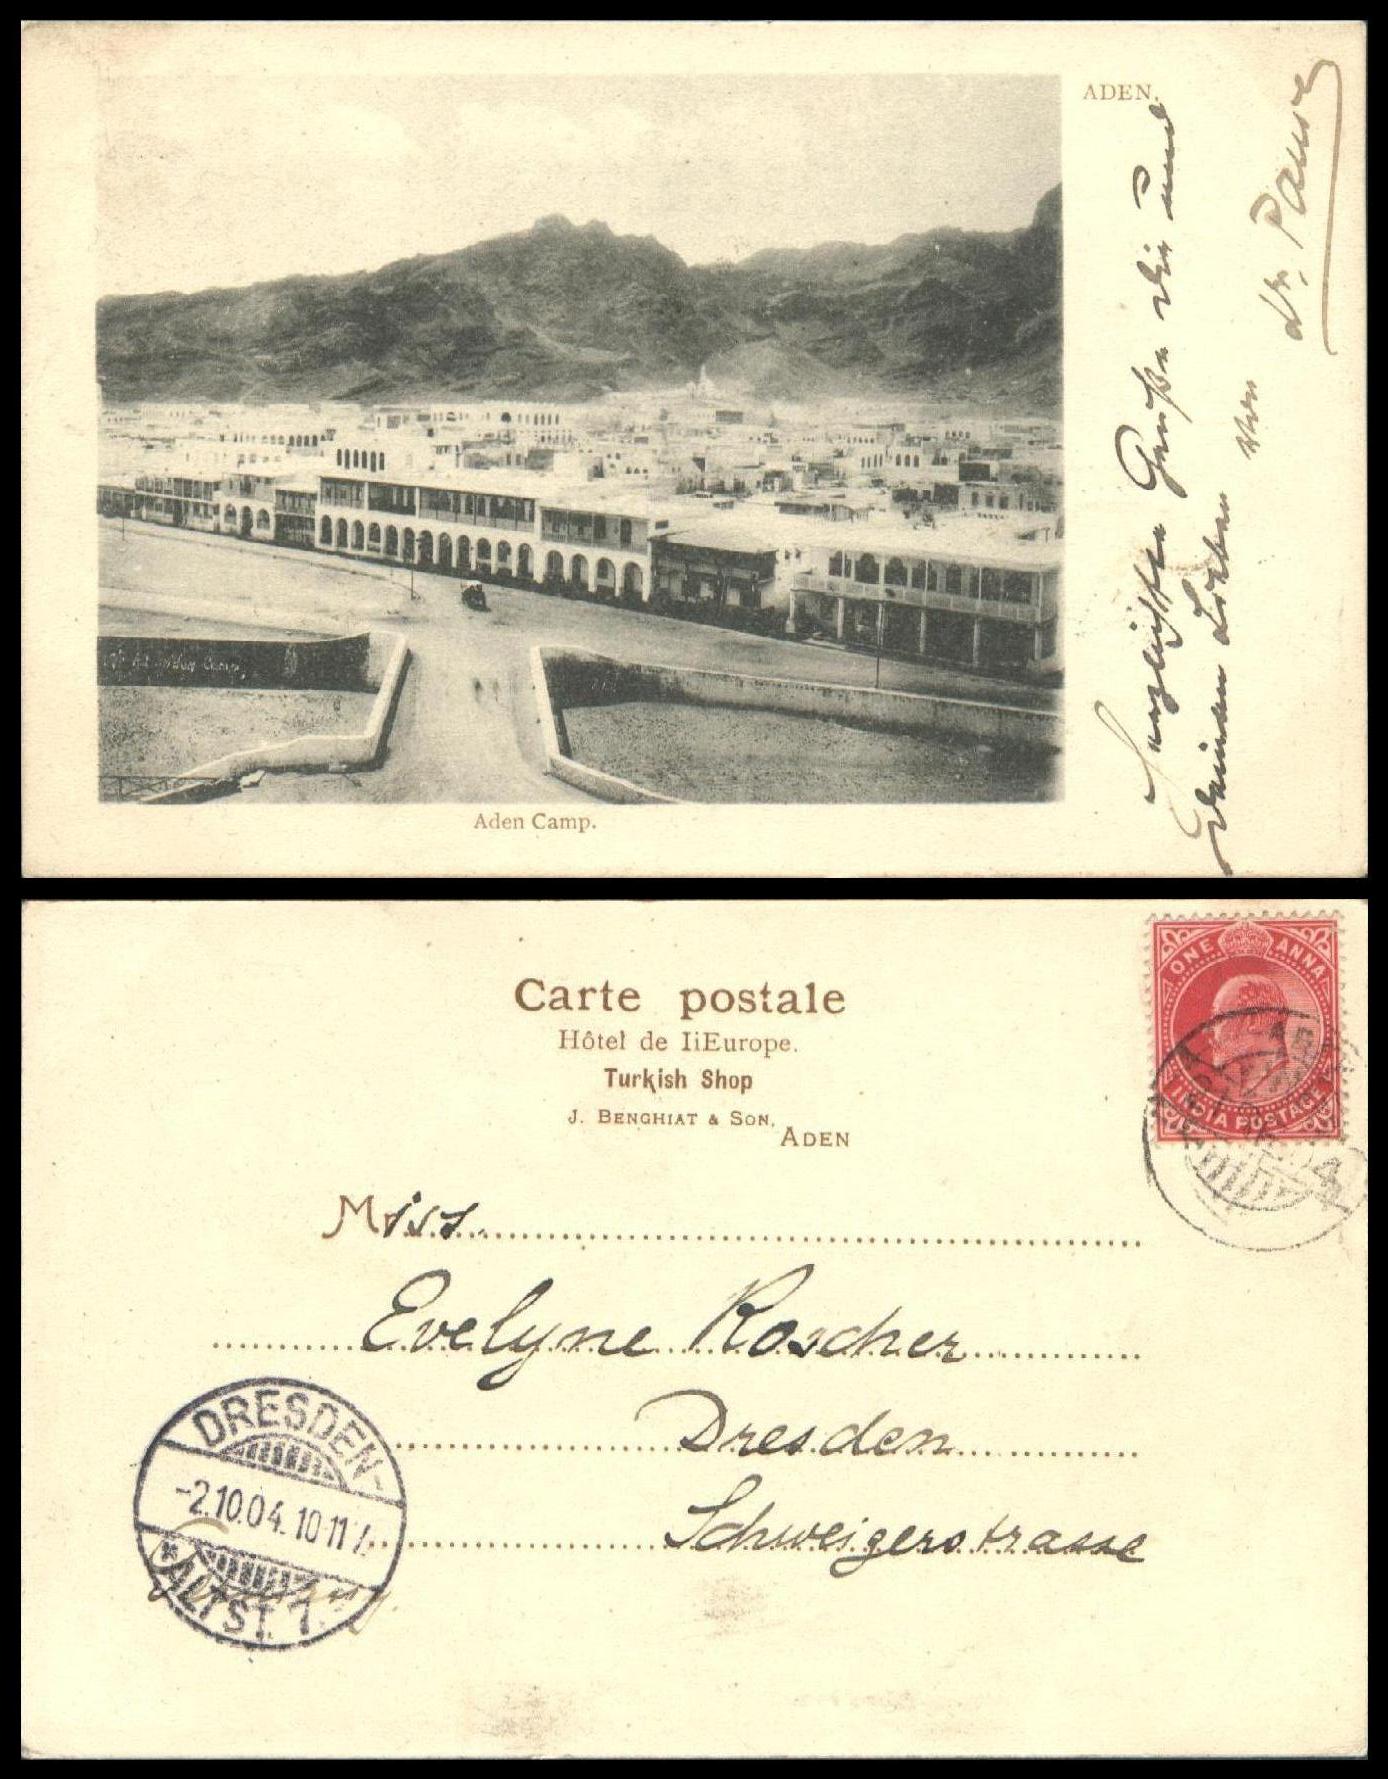 ADEN.
Herzlichste Grüße dir und
deinen Lieben von
Dr. Pause
Aden Camp.
Carte postale
Hôtel de IiEurope.
Turkish Shop
J. BENGHIAT & SON,
ADEN
Miss
Evelyne Roscher
Dresden
Schweizerstrasse
ONE ANNA
INDIA POSTAGE
DRESDEN-
-2.10.04. 10-11 V.
*ALTST. 7.